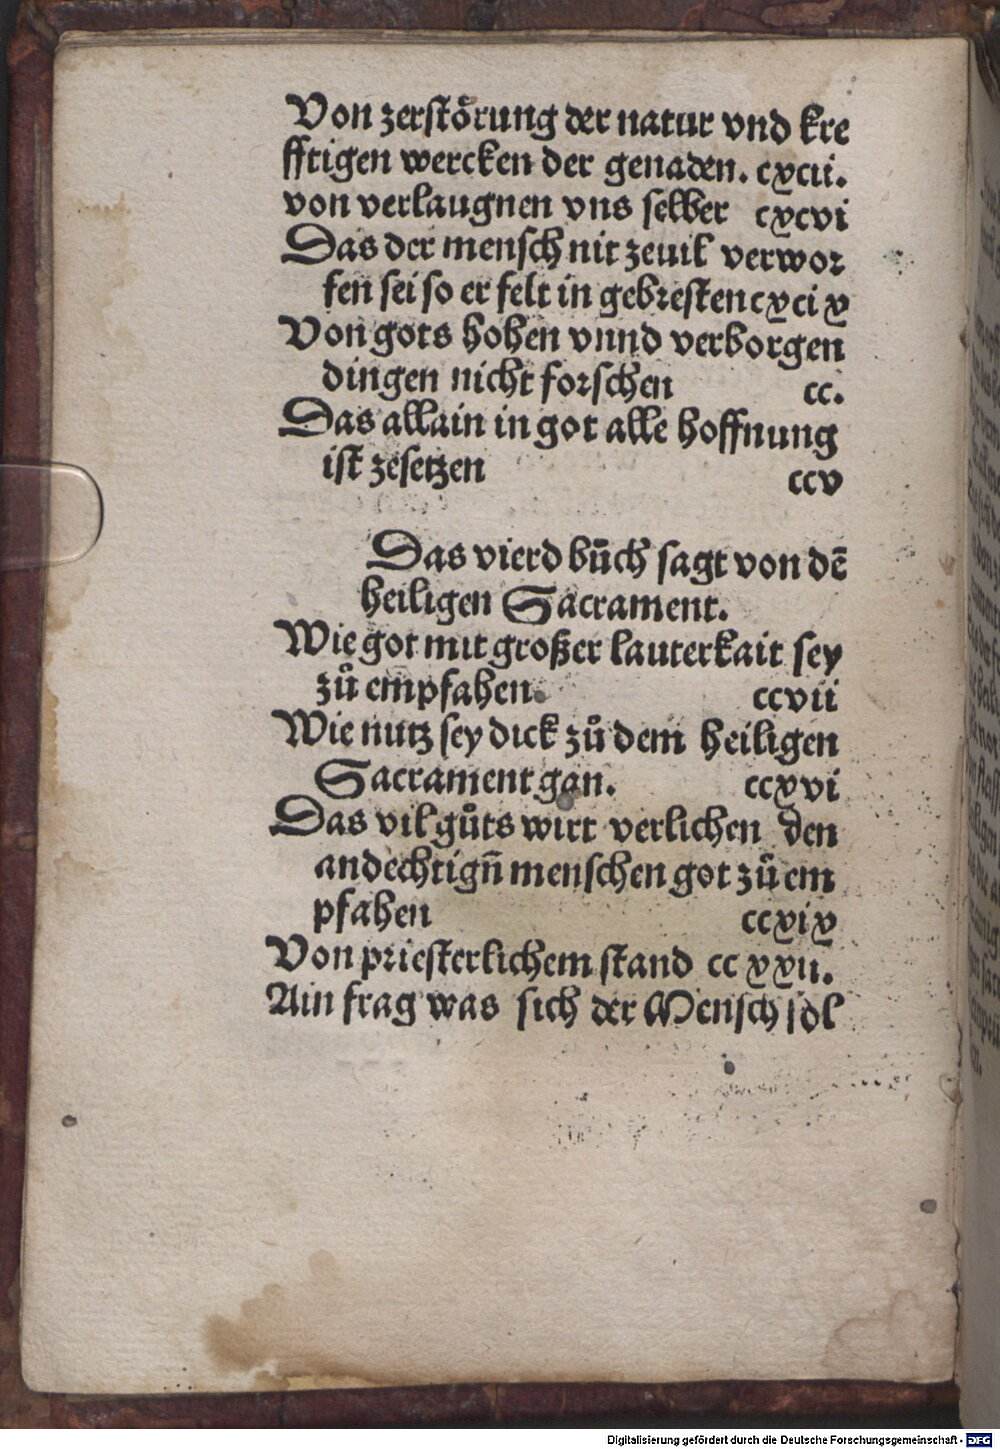 Von zerstörung der natur vnd kre
fftigen wercken der genaden. cxcii.
von verlaugnen vns selber cxcvi
Das der mensch nit zeuil verwor
fen sei so er felt in gebresten cxcix
Von gots hohen vnnd verborgen
dingen nicht forschen cc.
Das allain in got alle hoffnung
ist zesetzen ccv
Das vierd bůch sagt von dē
heiligen Sacrament.
Wie got mit großer lauterkait sey
zů empfahen. ccvii
Wie nutz sey dick zů dem heiligen
Sacrament gan. ccxvi
Das vil gůts wirt verlichen den
andechtign̄ menschen got zů em
pfahen ccxix
Von priesterlichem stand ccxxii.
Ain frag was sich der Mensch sol
Digitalisierung gefördert durch die Deutsche Forschungsgemeinschaft - DFG